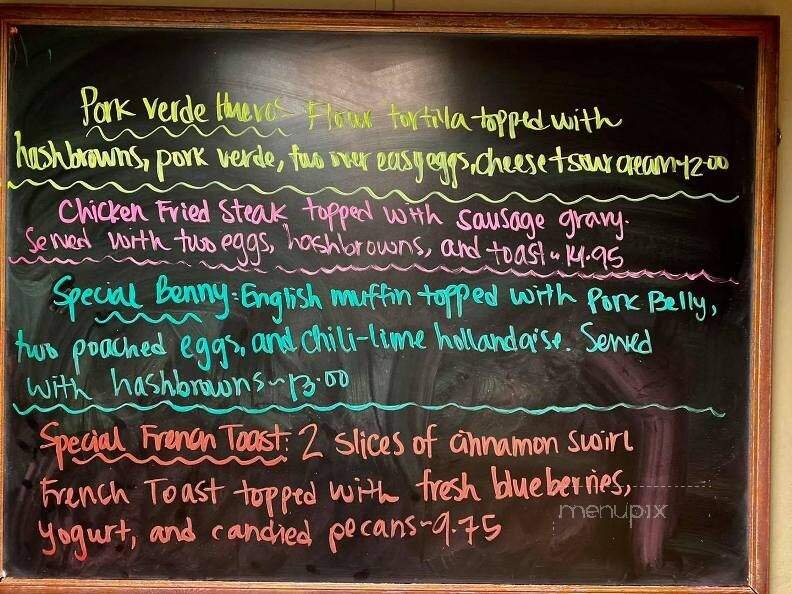 Pork verde Huevos- Flour tortilla topped with
hashbrowns, pork verde, two over easy eggs, cheese + sour cream~12.00
Chicken Fried Steak topped with sausage gravy.
Served with two eggs, hashbrowns, and toast ~ 14.95
Special Benny: English muffin topped with Pork Belly,
two poached eggs, and chili-lime hollandaise. Served
with hashbrowns~13.00
Special French Toast: 2 slices of cinnamon swirl
French Toast topped with fresh blueberries,
yogurt, and candied pecans~9.75
menupix